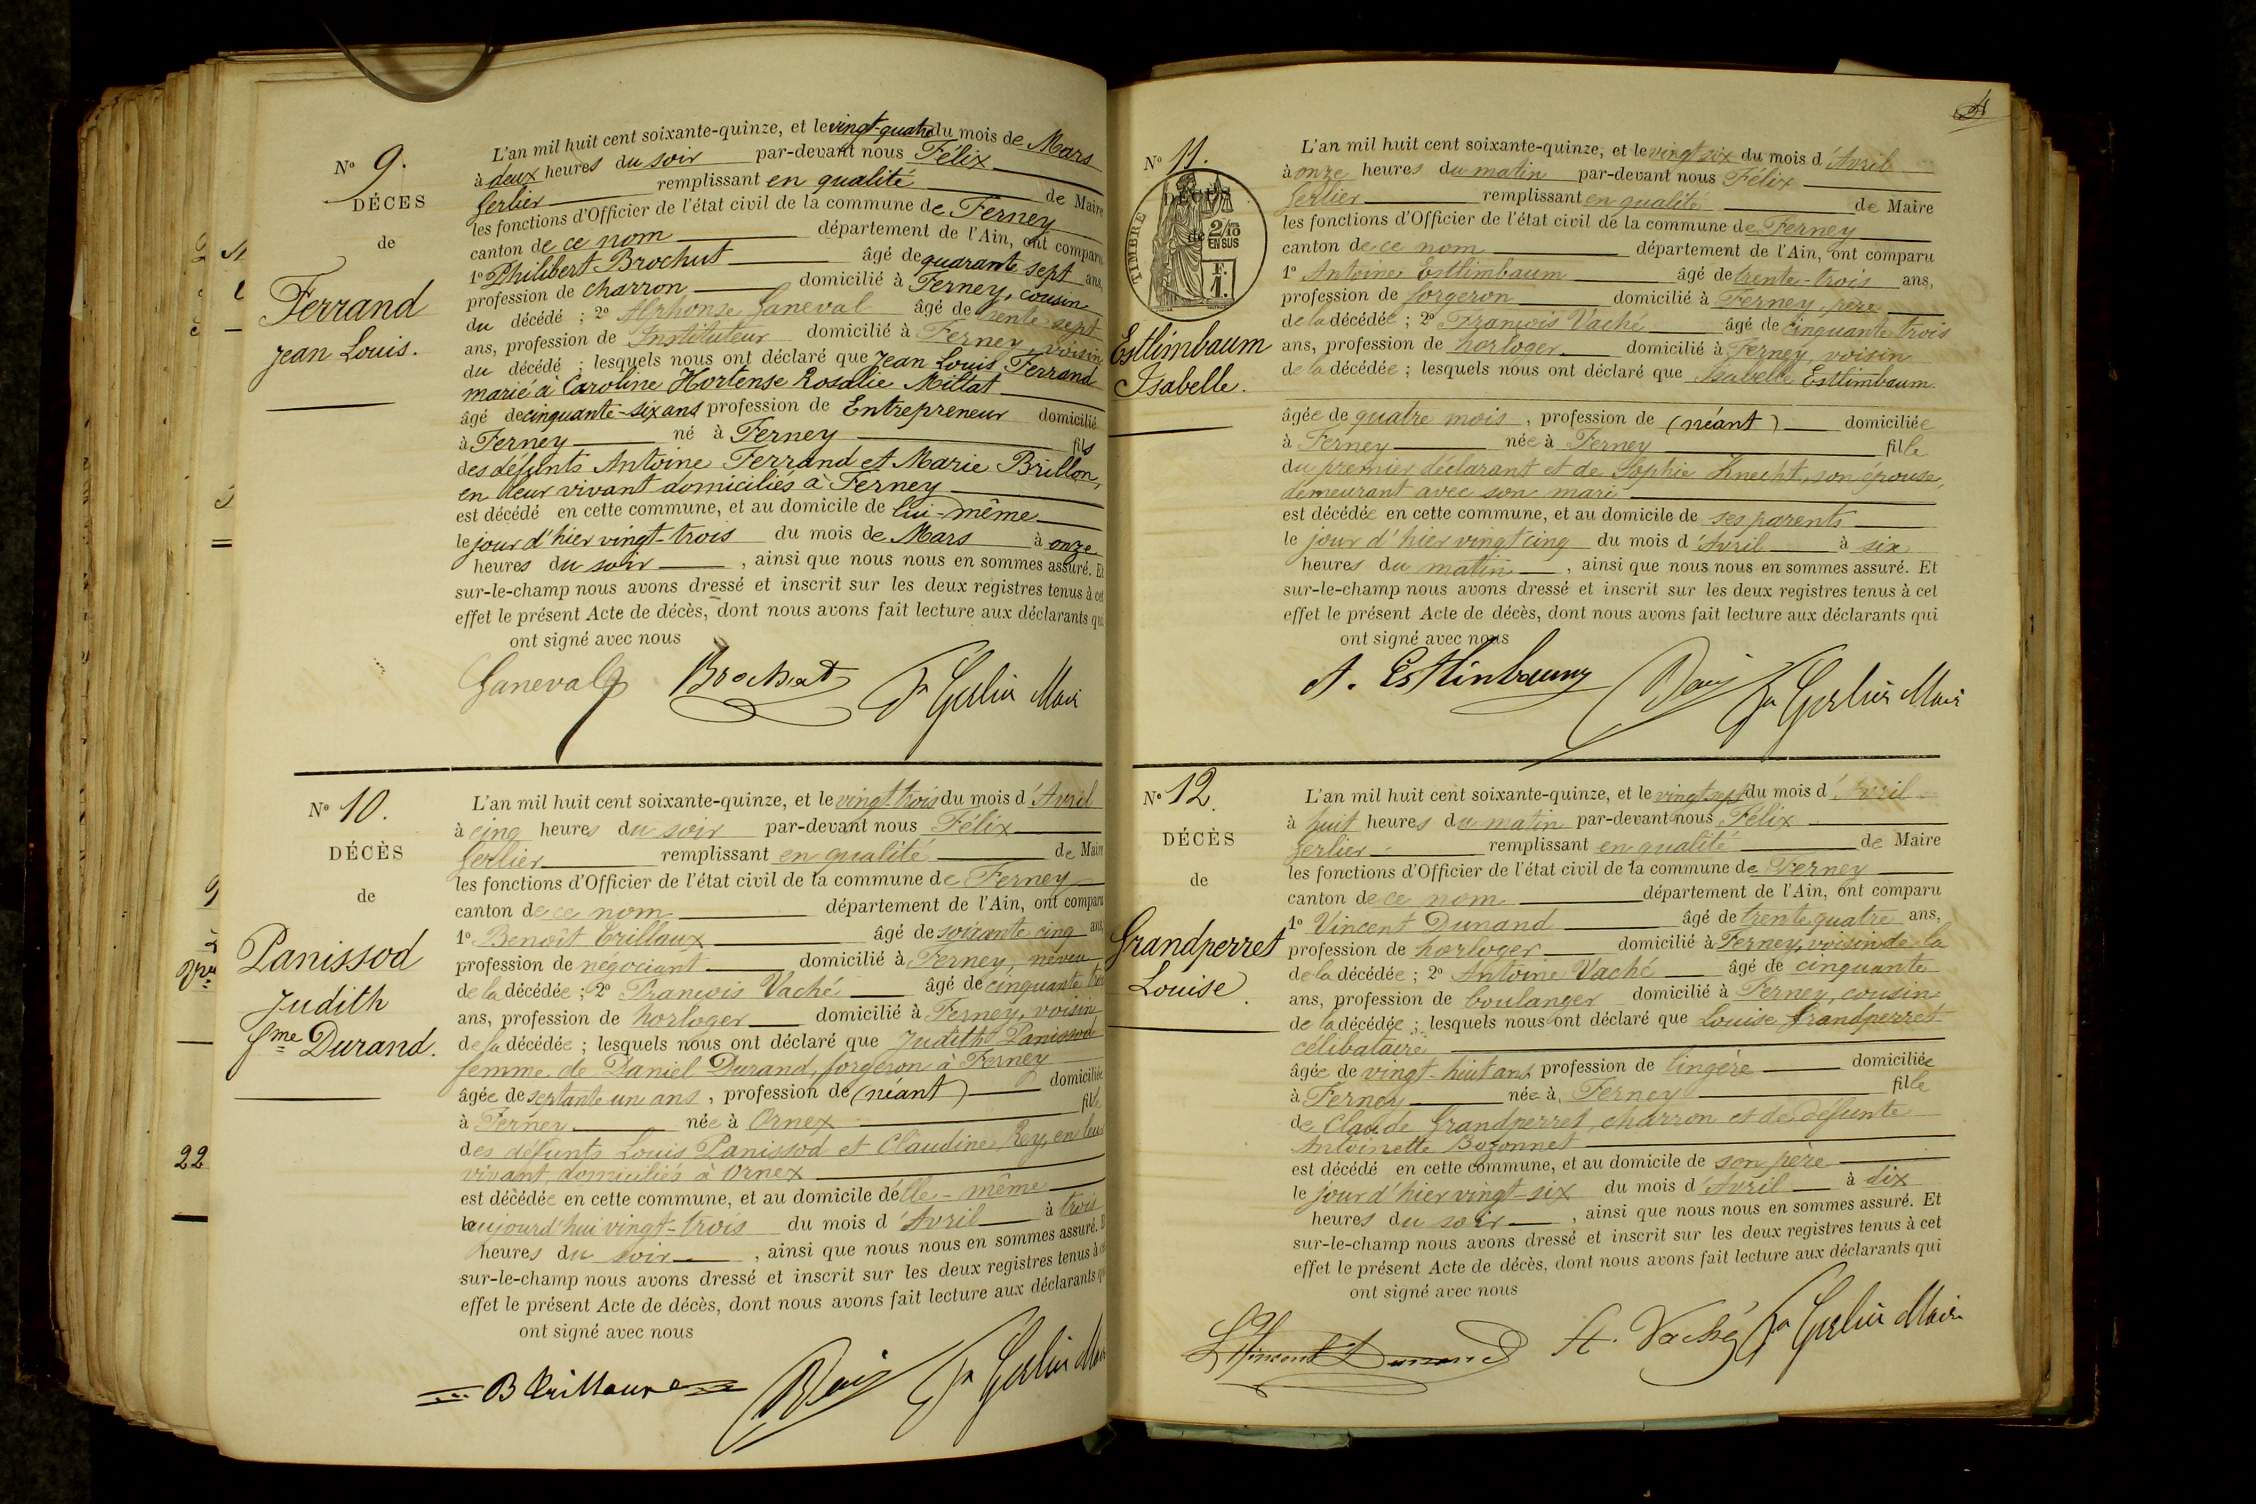 N° 9.
DÉCÈS
de
Ferrand
Jean Louis.
L'an mil huit cent soixante-quinze, et le vingt-quatre du mois de Mars
à deux heures du soir par-devant nous Félix
Gerlier remplissant en qualité de Maire
les fonctions d'Officier de l'état civil de la commune de Ferney
canton de ce nom département de l'Ain, ont comparu
1° Philibert Brochut âgé de quarante sept ans,
profession de charron domicilié à Ferney, cousin
du décédé ; 2° Alphonse Ganeval âgé de trente sept
ans, profession de Instituteur domicilié à Ferney, voisin
du décédé ; lesquels nous ont déclaré que Jean Louis Ferrand
marié à Caroline Hortense Rosalie Millat
âgé de cinquante-six ans profession de Entrepreneur domicilié
à Ferney né à Ferney fils
des défunts Antoine Ferrand et Marie Brillon,
en leur vivant domiciliés à Ferney
est décédé en cette commune, et au domicile de lui-même
le jour d'hier vingt-trois du mois de Mars à onze
heures du soir , ainsi que nous nous en sommes assuré. Et
sur-le-champ nous avons dressé et inscrit sur les deux registres tenus à cet
effet le présent Acte de décès, dont nous avons fait lecture aux déclarants qui
ont signé avec nous
Ganeval Brochut Fx Gerlier Maire
N° 10.
DÉCÈS
de
Panissod
Judith
fme Durand.
L'an mil huit cent soixante-quinze, et le vingt-trois du mois d'Avril
à cinq heures du soir par-devant nous Félix
Gerlier remplissant en qualité de Maire
les fonctions d'Officier de l'état civil de la commune de Ferney
canton de ce nom département de l'Ain, ont comparu
1° Benoît Crillaux âgé de soixante cinq ans,
profession de négociant domicilié à Ferney, neveu
de la décédée ; 2° François Vaché âgé de cinquante trois
ans, profession de horloger domicilié à Ferney, voisin
de la décédée ; lesquels nous ont déclaré que Judith Panissod
femme de Daniel Durand, forgeron à Ferney
âgée de septante un ans , profession de (néant) domiciliée
à Ferney née à Ornex fille
des défunts Louis Panissod et Claudine Rey, en leur
vivant, domiciliés à Ornex
est décédée en cette commune, et au domicile d'elle-même
le aujourd'hui vingt-trois du mois d'Avril à trois
heures du soir , ainsi que nous nous en sommes assuré. Et
sur-le-champ nous avons dressé et inscrit sur les deux registres tenus à cet
effet le présent Acte de décès, dont nous avons fait lecture aux déclarants qui
ont signé avec nous
B Crillaux Fx Gerlier Maire
22
4
N° 11.
DÉCÈS
de
TIMBRE
2/10
EN SUS
F.
1.
Estlimbaum
Isabelle.
L'an mil huit cent soixante-quinze, et le vingt six du mois d'Avril
à onze heures du matin par-devant nous Félix
Gerlier remplissant en qualité de Maire
les fonctions d'Officier de l'état civil de la commune de Ferney
canton de ce nom département de l'Ain, ont comparu
1° Antoine Estlimbaum âgé de trente-trois ans,
profession de forgeron domicilié à Ferney, père
de la décédée ; 2° François Vaché âgé de cinquante trois
ans, profession de horloger domicilié à Ferney, voisin
de la décédée ; lesquels nous ont déclaré que Isabelle Estlimbaum
âgée de quatre mois , profession de (néant) domiciliée
à Ferney née à Ferney fille
du premier déclarant et de Sophie Knecht, son épouse,
demeurant avec son mari
est décédée en cette commune, et au domicile de ses parents
le jour d'hier vingt cinq du mois d'Avril à six
heures du matin , ainsi que nous nous en sommes assuré. Et
sur-le-champ nous avons dressé et inscrit sur les deux registres tenus à cet
effet le présent Acte de décès, dont nous avons fait lecture aux déclarants qui
ont signé avec nous
A. Estlinbaum Fx Gerlier Maire
N° 12.
DÉCÈS
de
Grandperret
Louise.
L'an mil huit cent soixante-quinze, et le vingt sept du mois d'Avril
à huit heures du matin par-devant nous Félix
Gerlier remplissant en qualité de Maire
les fonctions d'Officier de l'état civil de la commune de Ferney
canton de ce nom département de l'Ain, ont comparu
1° Vincent Dunand âgé de trente quatre ans,
profession de horloger domicilié à Ferney, voisin de la
de la décédée ; 2° Antoine Vaché âgé de cinquante
ans, profession de boulanger domicilié à Ferney, cousin
de la décédée ; lesquels nous ont déclaré que Louise Grandperret
célibataire
âgée de vingt-huit ans profession de lingère domiciliée
à Ferney née à Ferney fille
de Claude Grandperret, charron et de défunte
Antoinette Bozonnet
est décédé en cette commune, et au domicile de son père
le jour d'hier vingt-six du mois d'Avril à dix
heures du soir , ainsi que nous nous en sommes assuré. Et
sur-le-champ nous avons dressé et inscrit sur les deux registres tenus à cet
effet le présent Acte de décès, dont nous avons fait lecture aux déclarants qui
ont signé avec nous
Vincent Dunand A. Vaché Fx Gerlier Maire